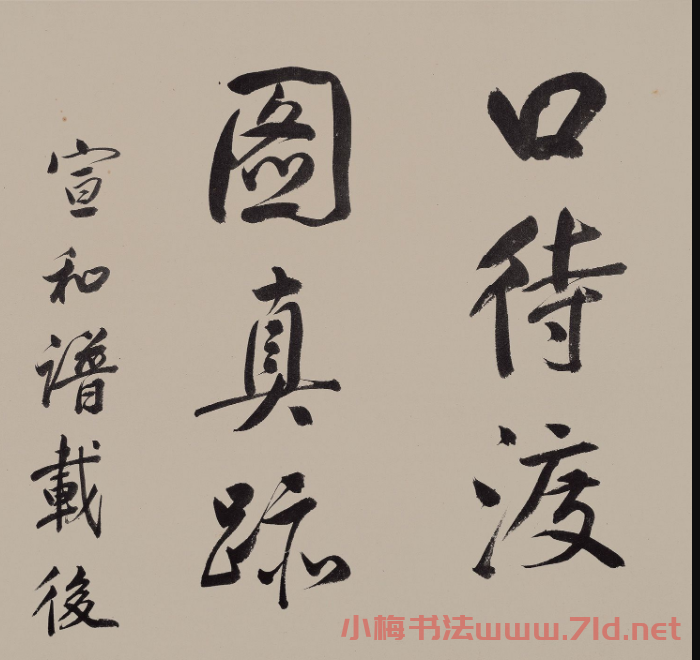 口待渡
圖真跡
宣和譜載後
小梅书法www.7ld.net